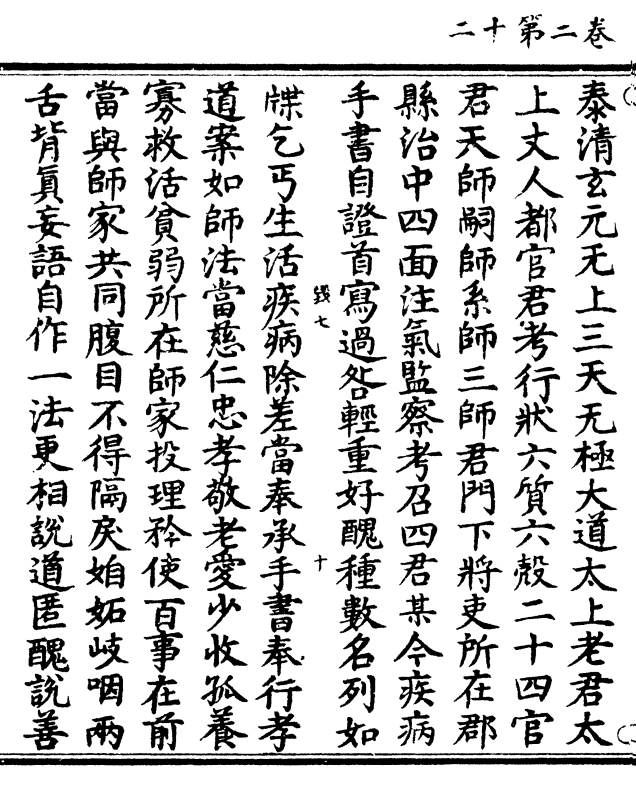 卷二第十二
泰清玄元无上三天无極大道太上老君太
上丈人都官君考行狀六質六殼二十四官
君天師嗣師系師三師君門下將吏所在郡
縣治中四面注氣監察考召四君某今疾病
手書自證首寫過咎輕重好醜種數名列如
牒乞丐生活疾病除差當奉承手書奉行孝
道案如師法當慈仁忠孝敬老愛少收孤養
寡救活貧弱所在師家投理矜使百事在前
當與師家共同腹目不得隔戾姤妬岐咽兩
舌背真妄語自作一法更相說道匿醜說善
賤七
十